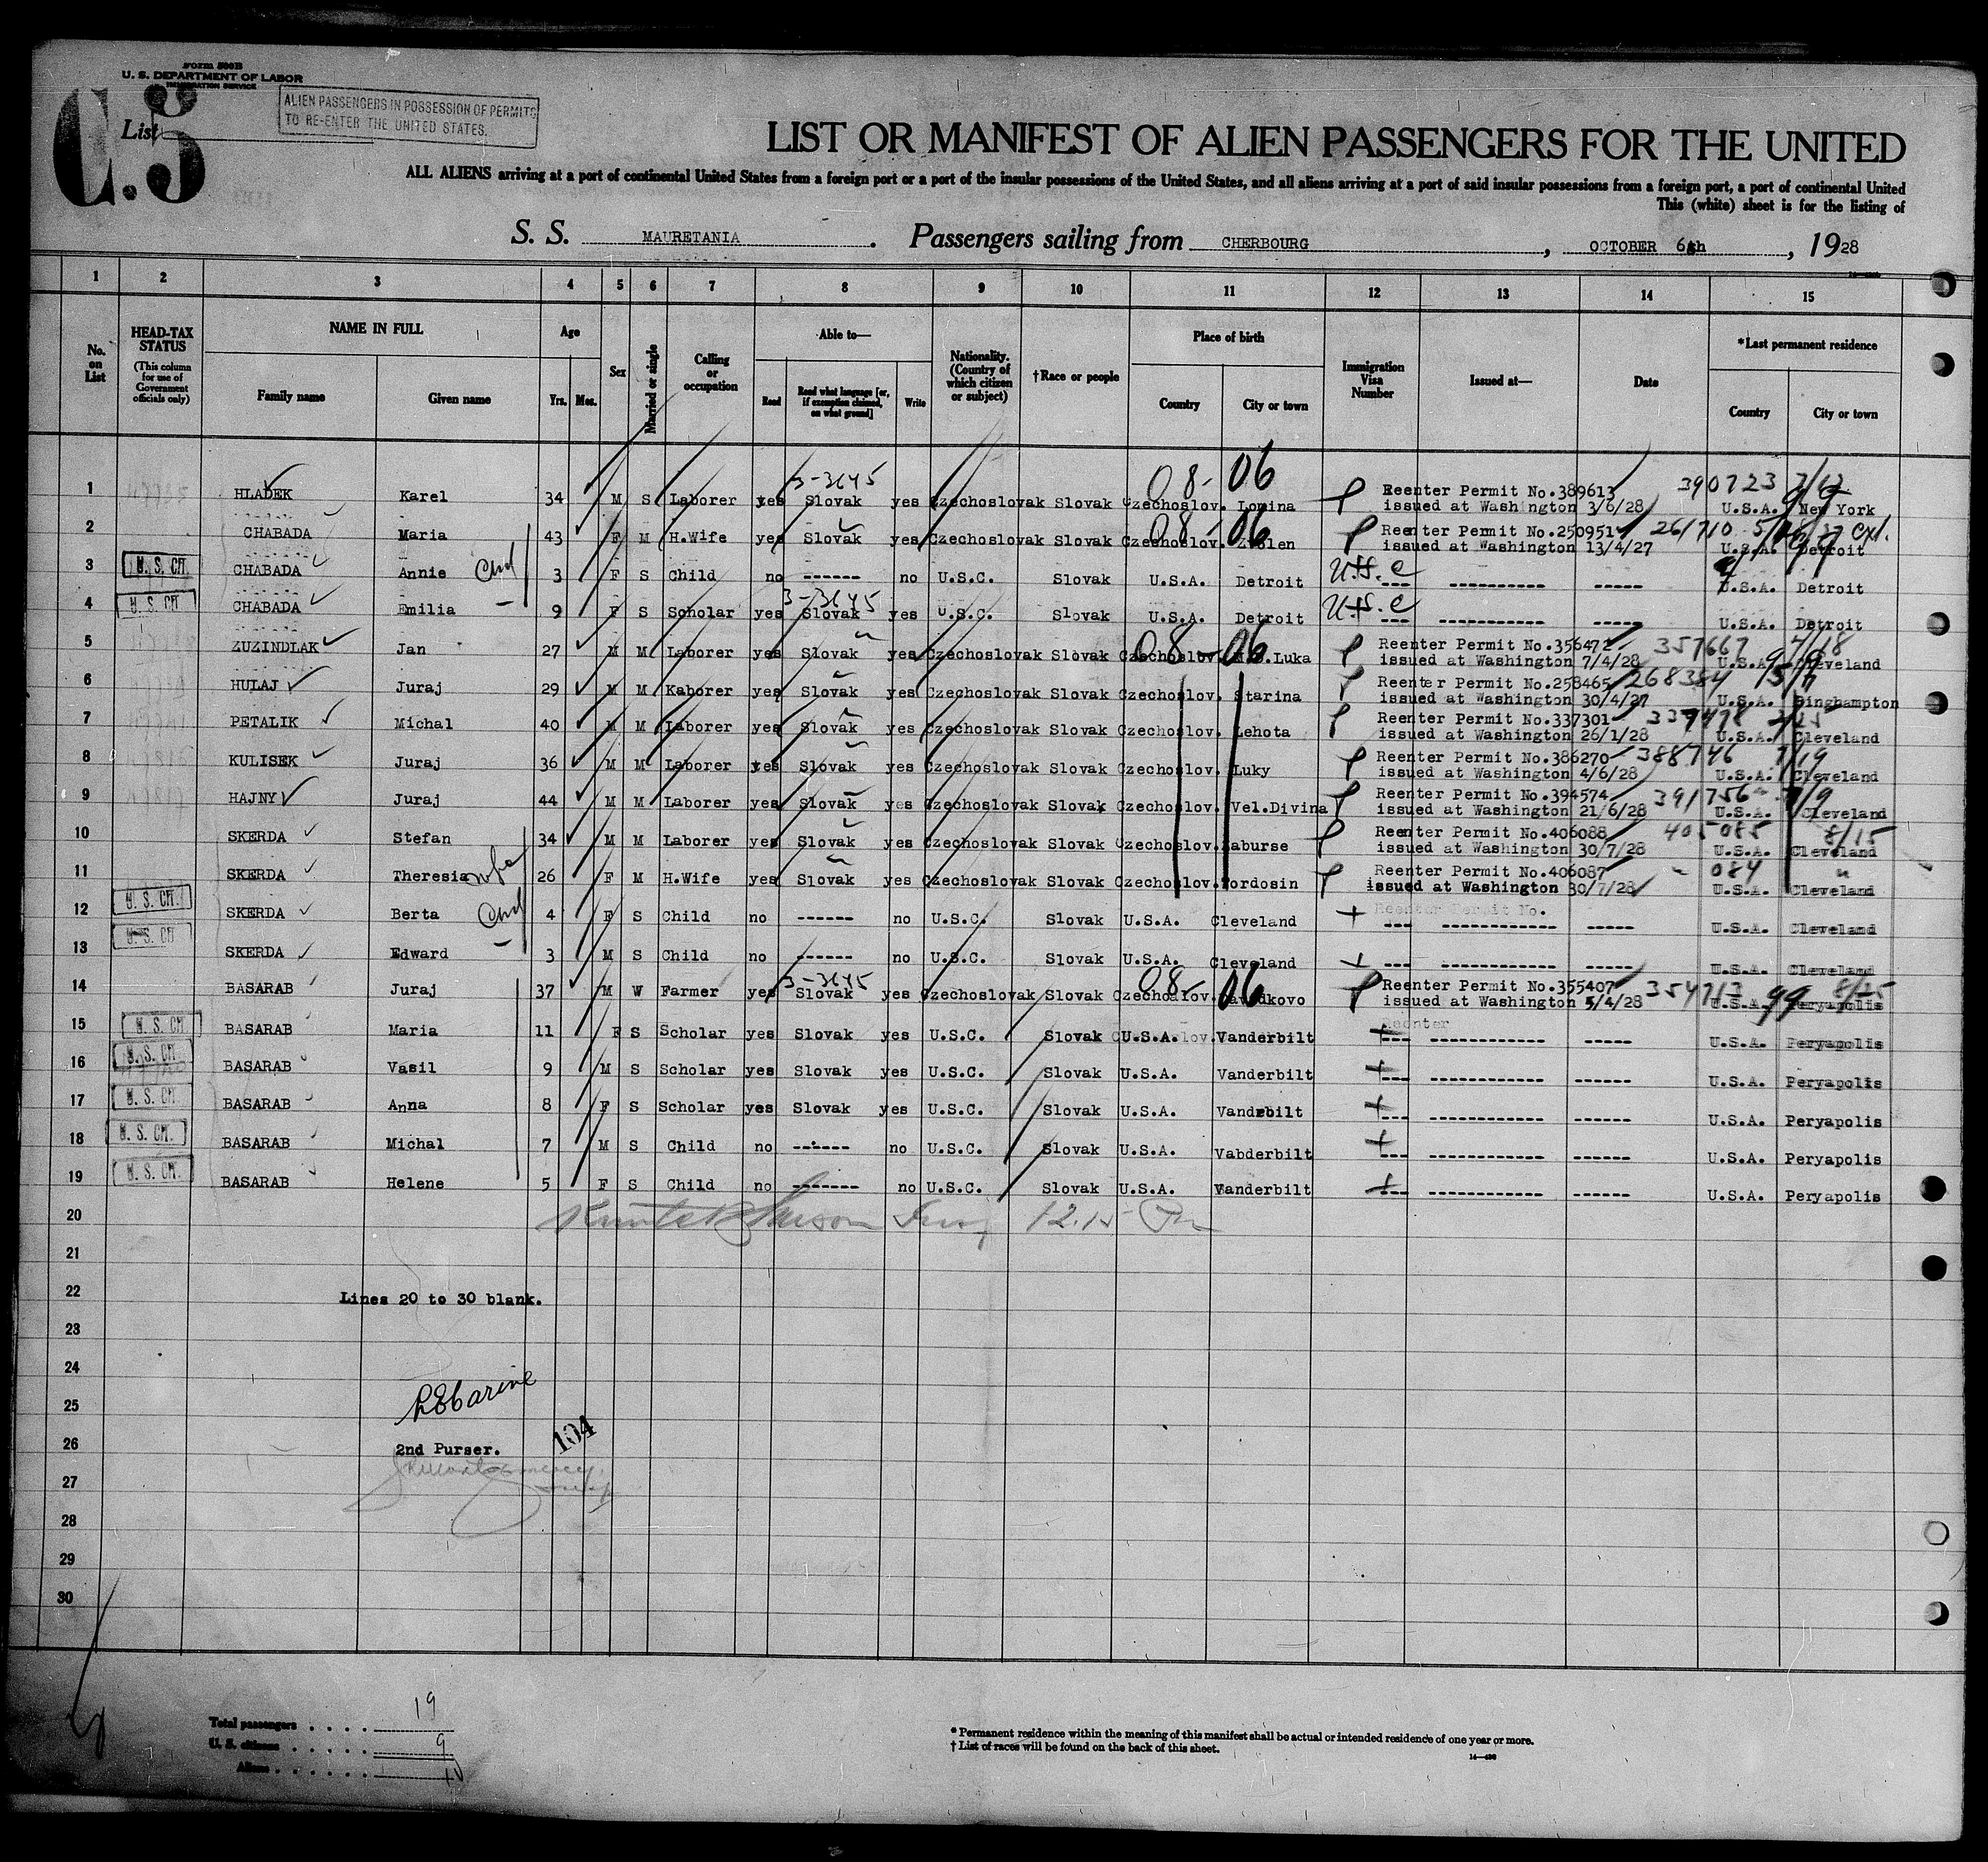 Form 500B
U. S. DEPARTMENT OF LABOR
IMMIGRATION SERVICE
C.5
List
ALIEN PASSENGERS IN POSSESSION OF PERMITS
TO RE-ENTER THE UNITED STATES.
LIST OR MANIFEST OF ALIEN PASSENGERS FOR THE UNITED
ALL ALIENS arriving at a port of continental United States from a foreign port or a port of the insular possessions of the United States, and all aliens arriving at a port of said insular possessions from a foreign port, a port of continental United
This (white) sheet is for the listing of
S. S. MAURETANIA. Passengers sailing from CHERBOURG, OCTOBER 6th, 1928
1 2 3 4 5 6 7 8 9 10 11 12 13 14 15
No. on List
HEAD-TAX STATUS (This column for use of Government officials only)
NAME IN FULL
Family name Given name
Age
Yrs. Mos.
Sex
Married or single
Calling or occupation
Able to—
Read Read what language [or, if exemption claimed, on what ground] Write
Nationality. (Country of which citizen or subject)
†Race or people
Place of birth
Country City or town
Immigration Visa Number
Issued at—
Date
*Last permanent residence
Country City or town
3-3645 08- 06
1 HLADEK Karel 34 M S Laborer yes Slovak yes Czechoslovak Slovak Czechoslov. Lopina Reenter Permit No.389613 390723
issued at Washington 3/6/28 U.S.A. New York
2 CHABADA Maria 43 F M H.Wife yes Slovak yes Czechoslovak Slovak Czechoslov. Zvolen Reenter Permit No.250951 261710
08-06 issued at Washington 13/4/27 U.S.A. Detroit
3 U. S. CIT. CHABADA Annie Chd 3 F S Child no ------ no U.S.C. Slovak U.S.A. Detroit U.S.C --- ----------- ----- U.S.A. Detroit
3-3645
4 U. S. CIT. CHABADA Emilia 9 F S Scholar yes Slovak yes U.S.C. Slovak U.S.A. Detroit U.S.C --- ----------- ----- U.S.A. Detroit
5 ZUZINDLAK Jan 27 M M Laborer yes Slovak yes Czechoslovak Slovak Czechoslov. Luka Reenter Permit No.356472 357667 4/18
08-06 issued at Washington 7/4/28 U.S.A. Cleveland
6 HULAJ Juraj 29 M M Kaborer yes Slovak yes Czechoslovak Slovak Czechoslov. Starina Reenter Permit No.258465 268384
issued at Washington 30/4/27 U.S.A. Binghampton
7 PETALIK Michal 40 M M Laborer yes Slovak yes Czechoslovak Slovak Czechoslov. Lehota Reenter Permit No.337301
issued at Washington 26/1/28 U.S.A. Cleveland
8 KULISEK Juraj 36 M M Laborer yes Slovak yes Czechoslovak Slovak Czechoslov. Luky Reenter Permit No.386270 388746 7/19
issued at Washington 4/6/28 U.S.A. Cleveland
9 HAJNY Juraj 44 M M Laborer yes Slovak yes Czechoslovak Slovak Czechoslov. Vel.Divina Reenter Permit No.394574 391756
issued at Washington 21/6/28 U.S.A. Cleveland
10 SKERDA Stefan 34 M M Laborer yes Slovak yes Czechoslovak Slovak Czechoslov. Zaburse Reenter Permit No.406088 405085 8/15
issued at Washington 30/7/28 U.S.A. Cleveland
11 SKERDA Theresia wife 26 F M H.Wife yes Slovak yes Czechoslovak Slovak Czechoslov. Tordosin Reenter Permit No.406087 " 084 "
issued at Washington 30/7/28 U.S.A. Cleveland
12 U. S. CIT. SKERDA Berta Chd 4 F S Child no ------ no U.S.C. Slovak U.S.A. Cleveland Reenter Permit No.
--- ------------ ----- U.S.A. Cleveland
13 U. S. CIT SKERDA Edward 3 M S Child no ------ no U.S.C. Slovak U.S.A. Cleveland --- ------------ ----- U.S.A. Cleveland
3-3645 08- 06
14 BASARAB Juraj 37 M W Farmer yes Slovak yes Czechoslovak Slovak Czechoslov. Reenter Permit No.355407 354713 99 8/25
issued at Washington 5/4/28 U.S.A. Peryapolis
15 U. S. CIT. BASARAB Maria 11 F S Scholar yes Slovak yes U.S.C. Slovak U.S.A. Vanderbilt Reenter --- ------------ ----- U.S.A. Peryapolis
16 U. S. CIT. BASARAB Vasil 9 M S Scholar yes Slovak yes U.S.C. Slovak U.S.A. Vanderbilt --- ------------ ------ U.S.A. Peryapolis
17 U. S. CIT. BASARAB Anna 8 F S Scholar yes Slovak yes U.S.C. Slovak U.S.A. Vandebilt --- ------------ ------ U.S.A. Peryapolis
18 U. S. CIT. BASARAB Michal 7 M S Child no ------ no U.S.C. Slovak U.S.A. Vabderbilt --- ------------ ------ U.S.A. Peryapolis
19 U. S. CIT. BASARAB Helene 5 F S Child no ------- no U.S.C. Slovak U.S.A. Vanderbilt --- ------------ ------ U.S.A. Peryapolis
20 12.15 Pm
21
22 Lines 20 to 30 blank.
23
24
25
26 2nd Purser. 104
27
28
29
30
Total passengers . . . . 19
U. S. citizens . . . . . 9
Aliens . . . . . . 10
* Permanent residence within the meaning of this manifest shall be actual or intended residence of one year or more.
† List of races will be found on the back of this sheet.